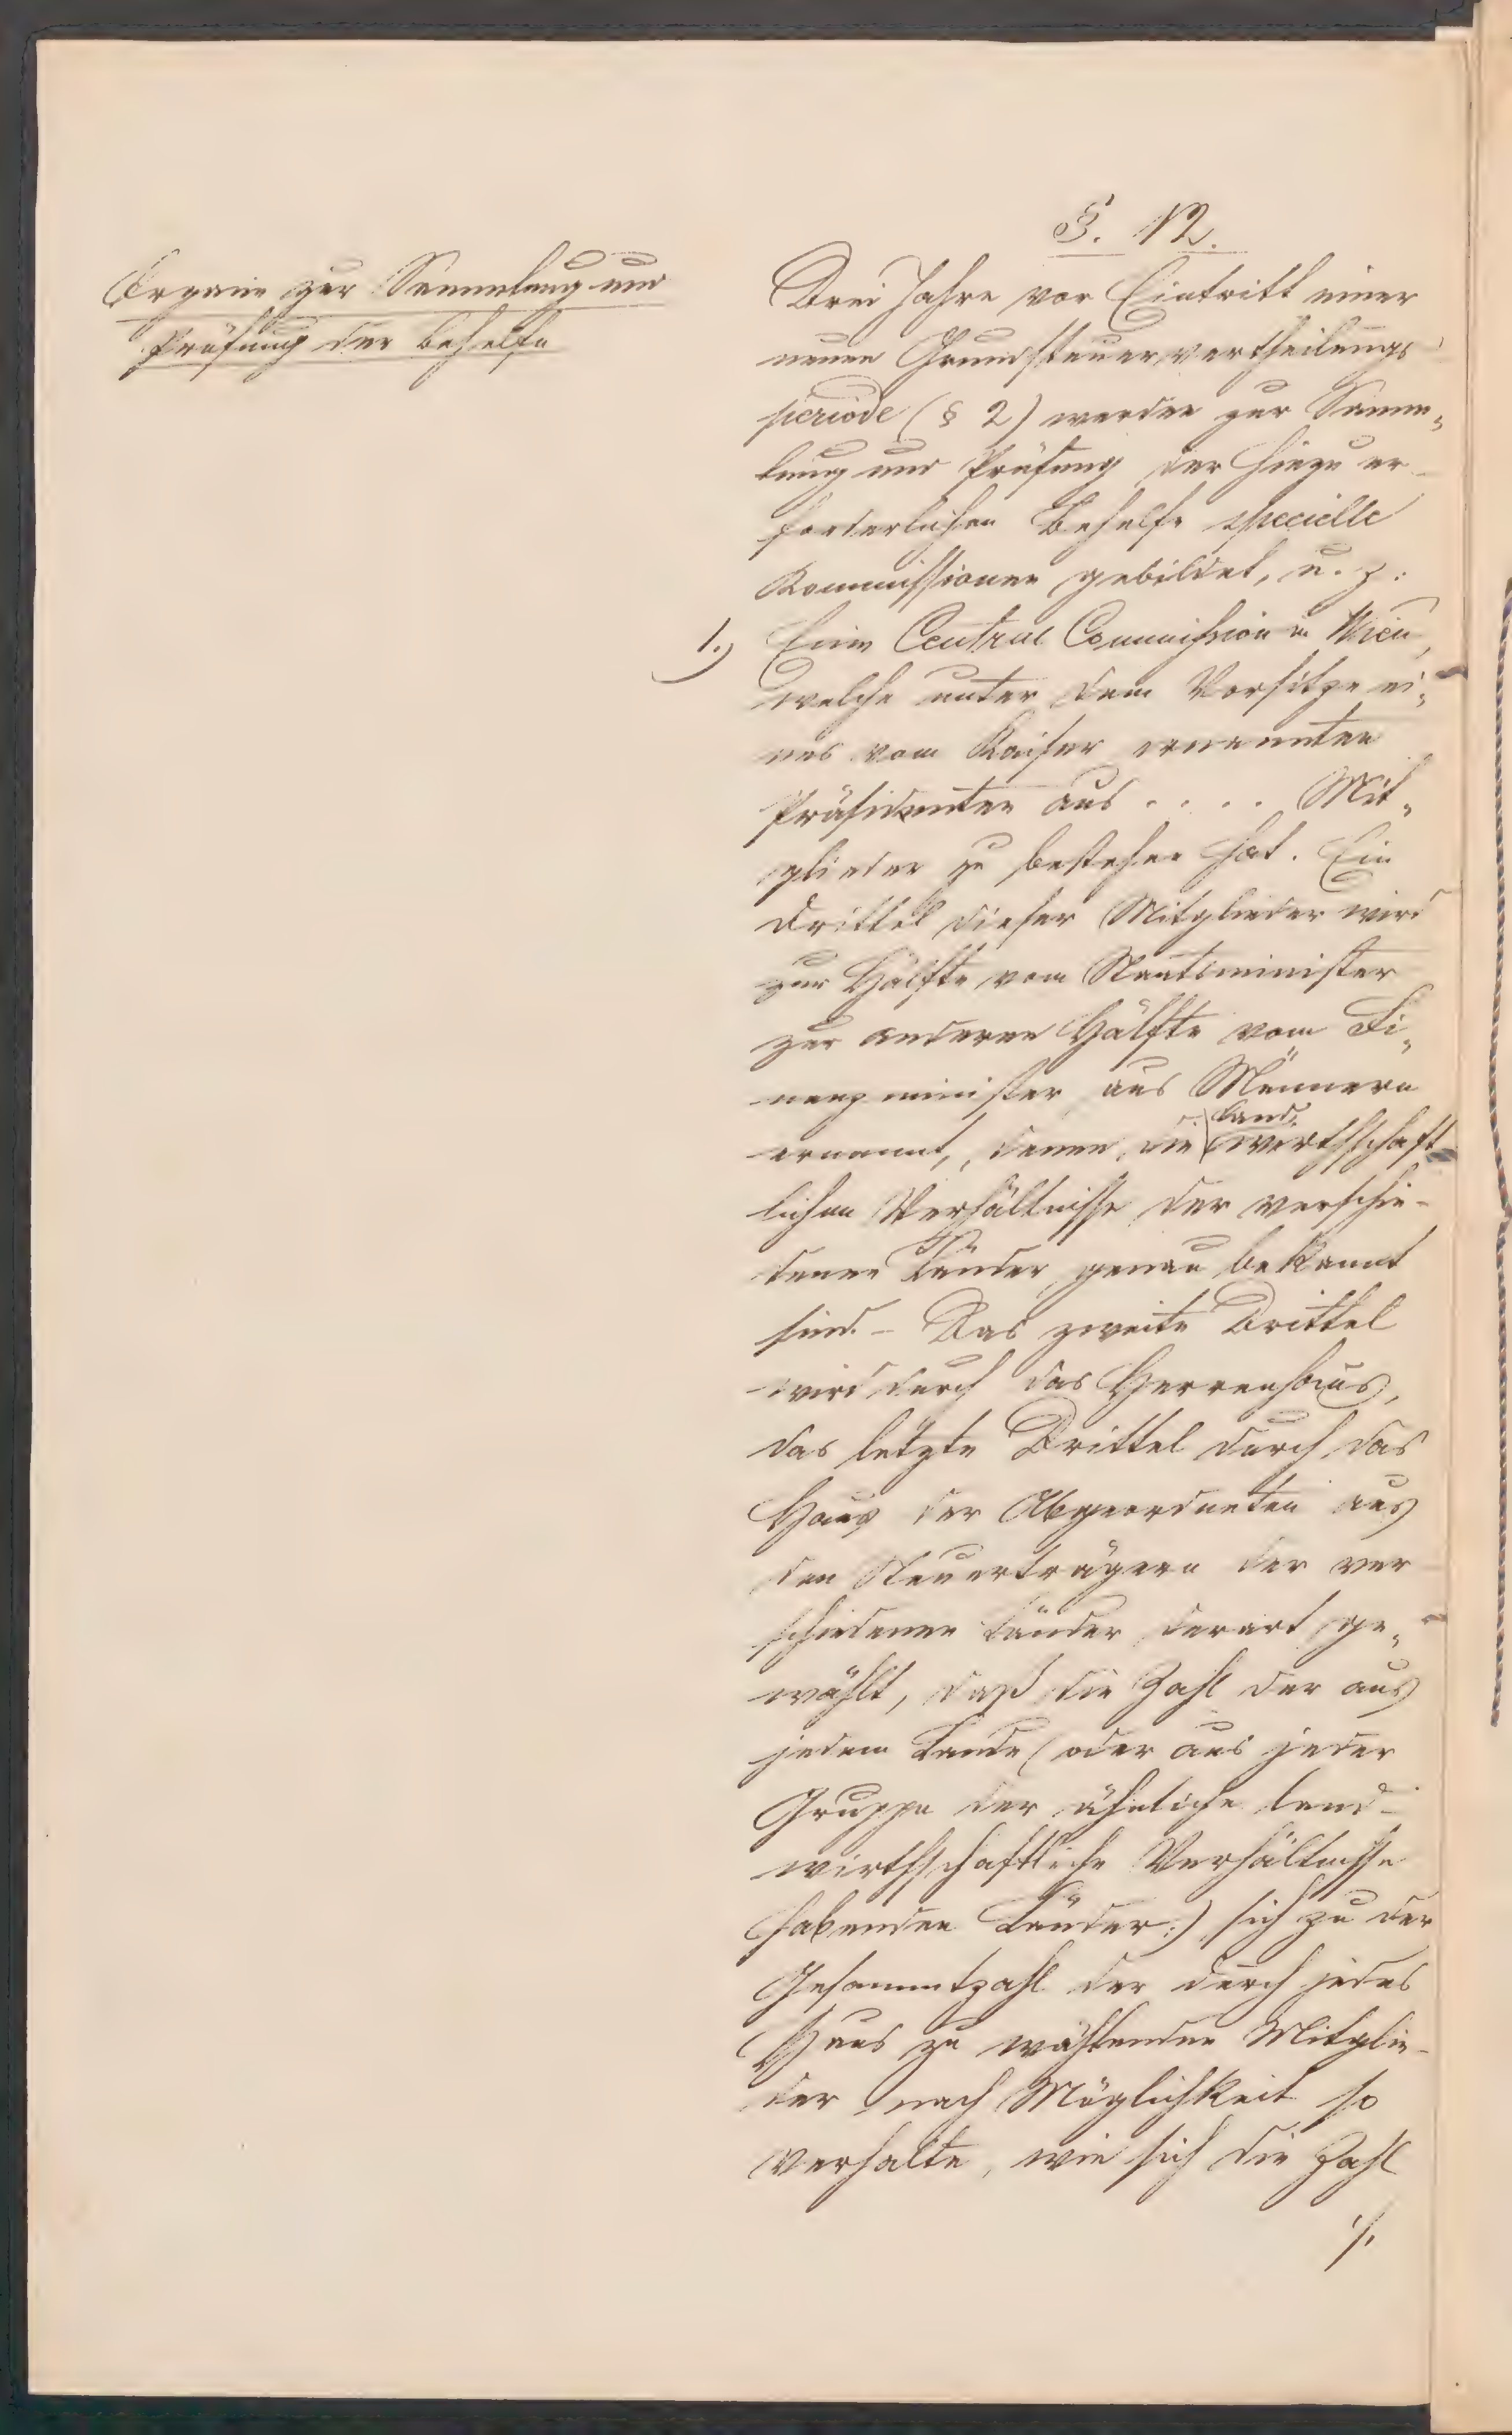 §. 12.
Organe zur Sammlung und
Prüfung der Behelfe
Drei Jahre vor Eintritt einer
neuen Grundsteuervertheilungs
periode (§ 2) werden zur Samm„
lung und Prüfung der hiezu er¬
forderlichen Behelfe specielle
Kommissionen gebildet, u. z.:
1.) Eine Central Commission in Wien,
welche unter dem Vorsitze ei„
nes vom Kaiser ernannten
Präsidenten aus . . . . Mit„
glieder zu bestehen hat. Ein
Drittel dieser Mitglieder wird
zur Hälfte vom Staatsminister
zur anderen Hälfte vom Fi„
nanzminister aus Männern
land„
ernannt, denen die wirthschaft¬
lichen Verhältnisse der verschie¬
denen Länder genau bekannt
sind. – Das zweite Drittel
wird durch das Herrenhaus,
das letzte Drittel durch das
Haus der Abgeordneten aus
den Steuerträgern der ver
schiedenen Länder derart ge„
wählt, daß die Zahl der aus
jedem Lande (oder aus jeder
Gruppe der ähnliche land¬
wirthschaftliche Verhältnisse
habenden Länder:) sich zu der
Gesammtzahl der durch jedes
Haus zu wählenden Mitglie¬
der nach Möglichkeit so
verhalte, wie sich die Zahl
./.